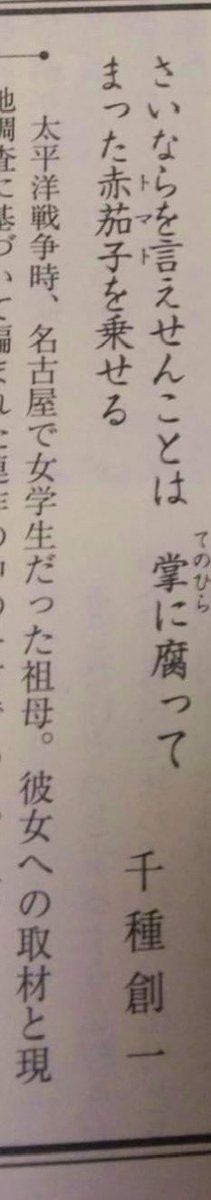 さいならを言えせんことは　掌に腐って
まった赤茄子を乗せる
千種創一
太平洋戦争時、名古屋で女学生だった祖母。彼女への取材と現
地調査に基づいて編まれた連作の中の